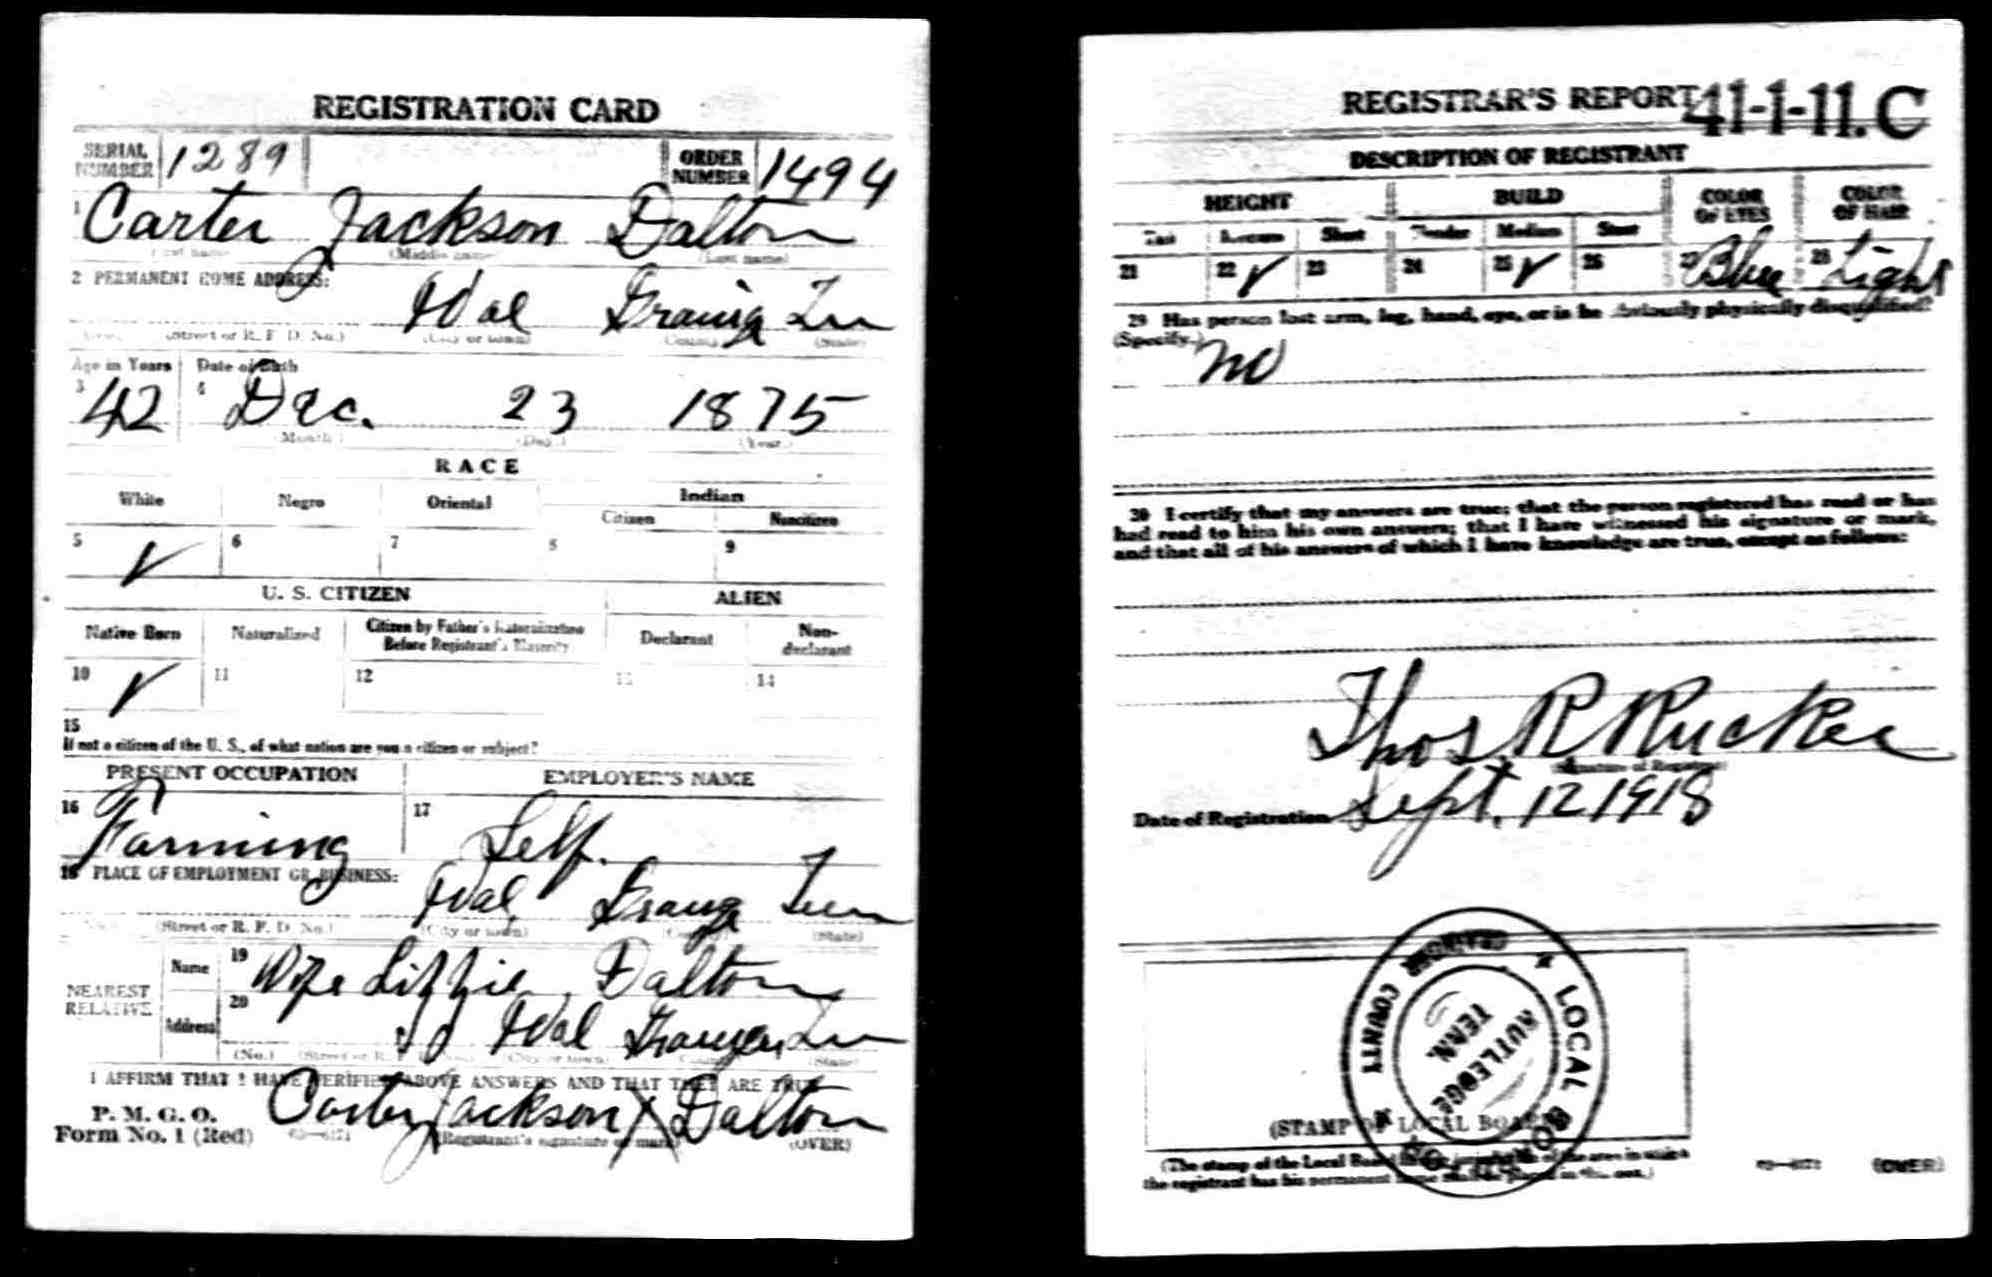 REGISTRATION CARD
SERIAL NUMBER 1289 ORDER NUMBER 1494
1 Carter Jackson Dalton
(First name) (Middle name) (Last name)
2 PERMANENT HOME ADDRESS:
Idal Grainger Ten
(No.) (Street or R. F. D. No.) (City or town) (County) (State)
Age in Years Date of Birth
3 42 4 Dec. 23 1875
(Month) (Day) (Year)
RACE
White Negro Oriental Indian
Citizen Noncitizen
5 ✓ 6 7 8 9
U. S. CITIZEN ALIEN
Native Born Naturalized Citizen by Father's Naturalization Before Registrant's Majority Declarant Non-declarant
10 ✓ 11 12 13 14
15
If not a citizen of the U. S., of what nation are you a citizen or subject?
PRESENT OCCUPATION EMPLOYER'S NAME
16 Farming 17 Self.
18 PLACE OF EMPLOYMENT OR BUSINESS:
Idal Tenn
(No.) (Street or R. F. D. No.) (City or town) (County) (State)
NEAREST RELATIVE
Name 19 Wife Lizzie Dalton
Address 20 Idal Grainger Ten
(No.) (Street or R. F. D. No.) (City or town) (County) (State)
I AFFIRM THAT I HAVE VERIFIED ABOVE ANSWERS AND THAT THEY ARE TRUE
P. M. G. O.
Form No. 1 (Red) Carter Jackson X Dalton
(Registrant's signature or mark) (OVER)
REGISTRAR'S REPORT 41-1-11. C
DESCRIPTION OF REGISTRANT
HEIGHT BUILD COLOR OF EYES COLOR OF HAIR
Tall Medium Short Slender Medium Stout
21 22 ✓ 23 24 25 ✓ 26 27 Blue 28 Light
29 Has person lost arm, leg, hand, eye, or is he obviously physically disqualified?
(Specify.) no
30 I certify that my answers are true; that the person registered has read or has
had read to him his own answers; that I have witnessed his signature or mark,
and that all of his answers of which I have knowledge are true, except as follows:
Thos R Rucker
(Signature of Registrar)
Date of Registration Sept. 12 1918
LOCAL BOARD
COUNTY
RUTLEDGE
TENN.
(STAMP OF LOCAL BOARD)
(The stamp of the Local Board of the area in which
the registrant has his permanent home shall be placed in this box.)
(OVER)